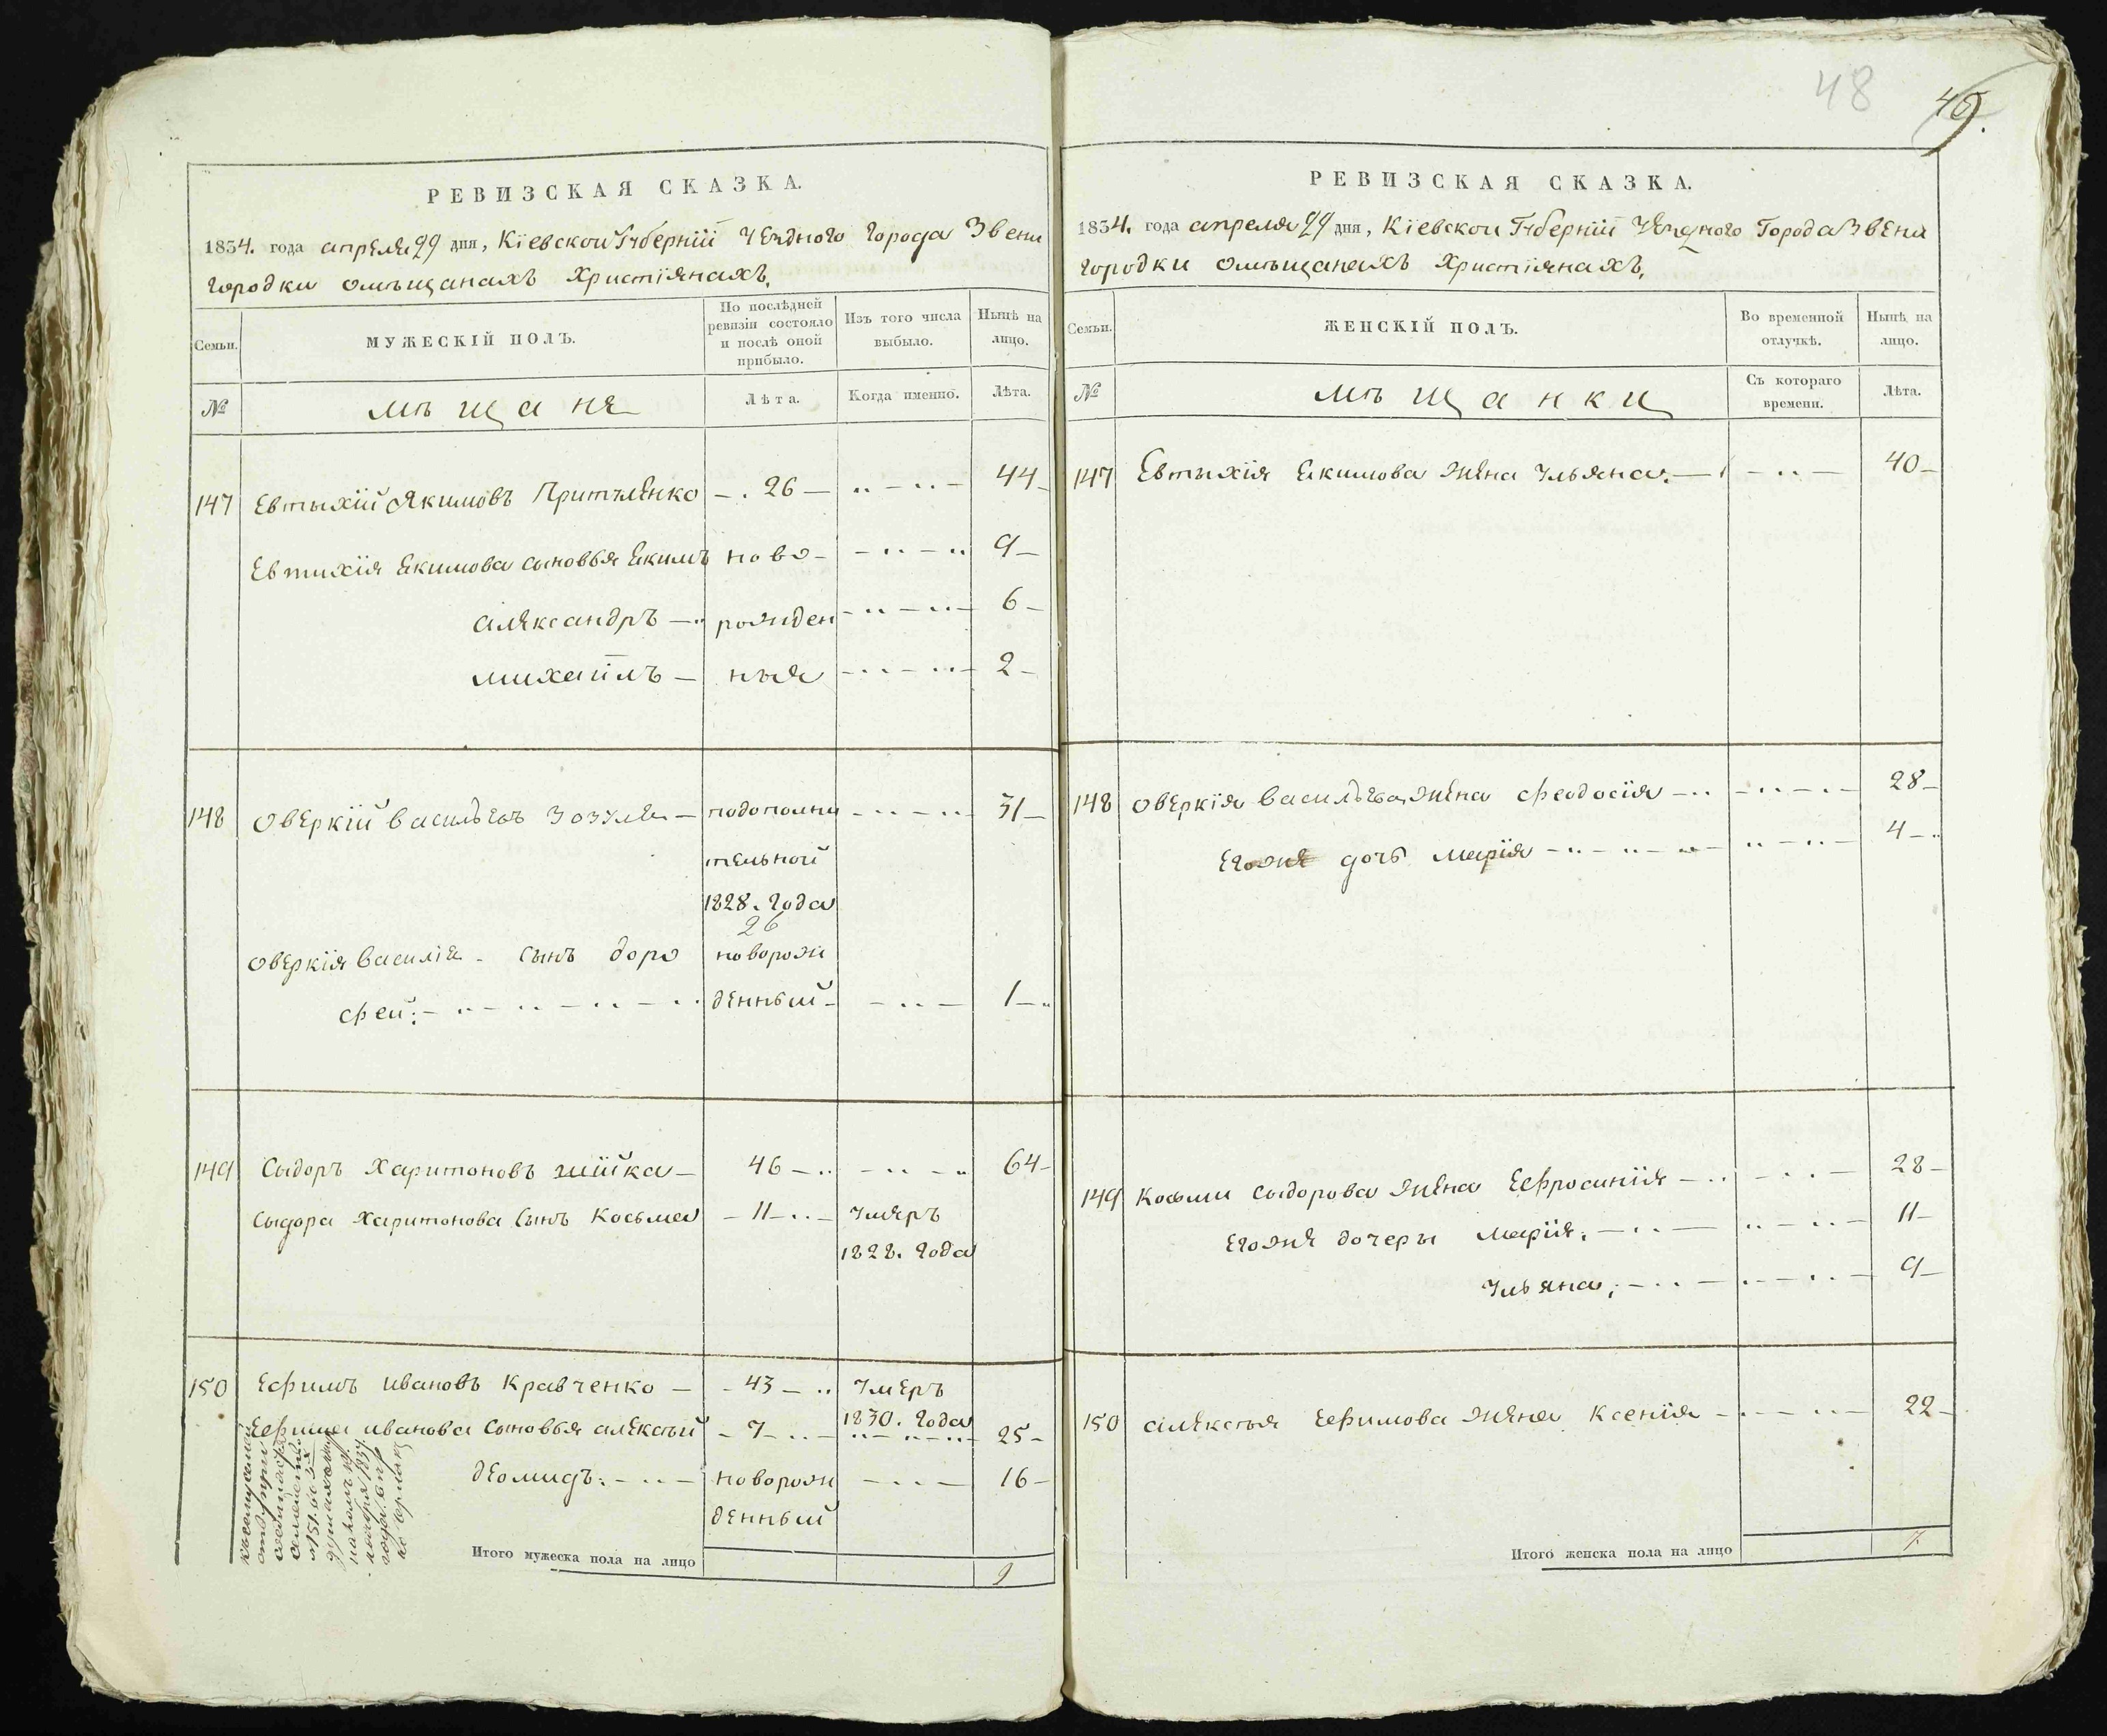 48
РЕВИЗСКАЯ СКАЗКА.
1834. года апреля 29 дня, Кіевской Губерніи Уезднаго Города Звени
городки о мѣщанахъ Христіянахъ.
Семьи.
МУЖЕСКІЙ ПОЛЪ.
По послѣдней
ревизіи состояло
и послѣ оной
прибыло.
Изъ того числа
выбыло.
Нынѣ на
лицо.
№
мѣщане
Лѣта.
Когда именно.
Лѣта.
147 Евтыхій Якимовъ Притуленко 26 44
Евтихія Екимова сыновья Екимъ ново- 9
александръ рожден 6
михаилъ ныя 2
148 Оверкій Васильевъ Зозуля подополни 31
тельной
1828. года
26
Оверкія Василіе сынъ доро новорож
фей: денный 1
149 Сыдоръ Харитоновъ шійка 46 64
Сыдора Харитонова сынъ Косьма 11 Умеръ
1828. года
150 Ефимъ Ивановъ Кравченко 43 Умеръ
1830. года
Ефима иванова сыновья алексѣй 7 25
деомидъ: новорож 16
денный
Итого мужеска пола на лицо 9
РЕВИЗСКАЯ СКАЗКА.
1834. года апреля 29 дня, Кіевской Губерніи Уезднаго Города Звени
городки о мѣщанахъ Христіянахъ.
Семьи.
ЖЕНСКІЙ ПОЛЪ.
Во временной
отлучкѣ.
Нынѣ на
лицо.
№
мѣщанки
Съ котораго
времени.
Лѣта.
147 Евтыхія Екимова жена Ульяна. 40
148 Оверкія Васильева жена Феодосія 28
Егоже дочь марія 4
149 Косьми Сыдорова жена Ефросинія 28
Егоже дочеры марія. 11
Ульяна, 9
150 алексѣя Ефимова жена Ксенія 22
Итого женска пола на лицо 7.